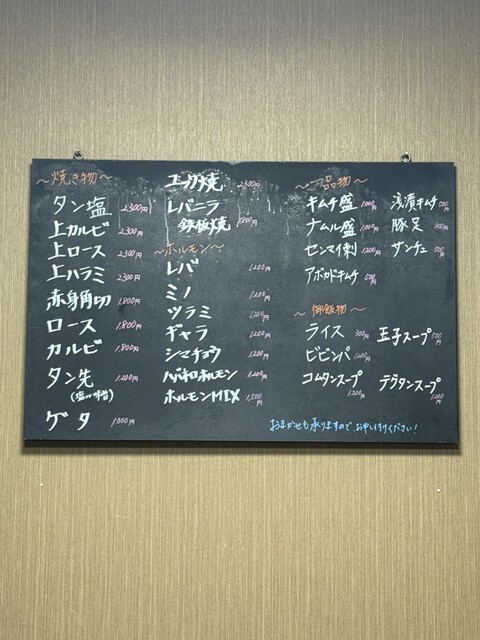 〜焼き物〜
タン塩 2300円
上カルビ 2300円
上ロース 2300円
上ハラミ 2300円
赤身角切 1,800円
ロース 1,800円
カルビ 1,800円
タン先 1,200円
ゲタ 1,000円
エンガワ焼 2300円
レバニラ
鉄板焼 1800円
〜ホルモン〜
レバ 1,200円
ミノ 1,200円
ツラミ 1,200円
ギャラ 1,200円
シマチョウ 1,200円
ハバネロホルモン 1,200円
ホルモンMIX 1,500円
〜一品物〜
キムチ盛 1,000円
ナムル盛 1,000円
センマイ刺 1,200円
アボカドキムチ 500円
浅漬キムチ 500円
豚足 300円
サンチュ 500円
〜御飯物〜
ライス 300円
ビビンパ 1,200円
コムタンスープ 1,200円
玉子スープ 500円
テグタンスープ 1,200円
おまかせも承りますので、お申し付けください!